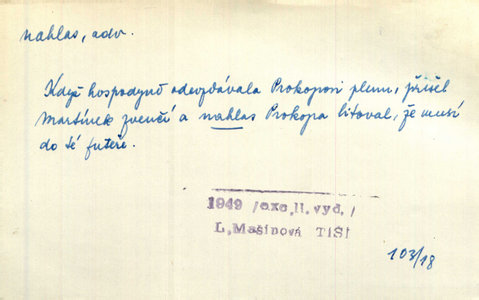 nahlas, adv.
Když hospodyně odevzdávala Prokopovi plenu, přišel
Martínek zvenčí a nahlas Prokopa litoval, že musí
do té futeře.
1949 /exc.II.vyd./
L.Mašínová TIŠI
103/18